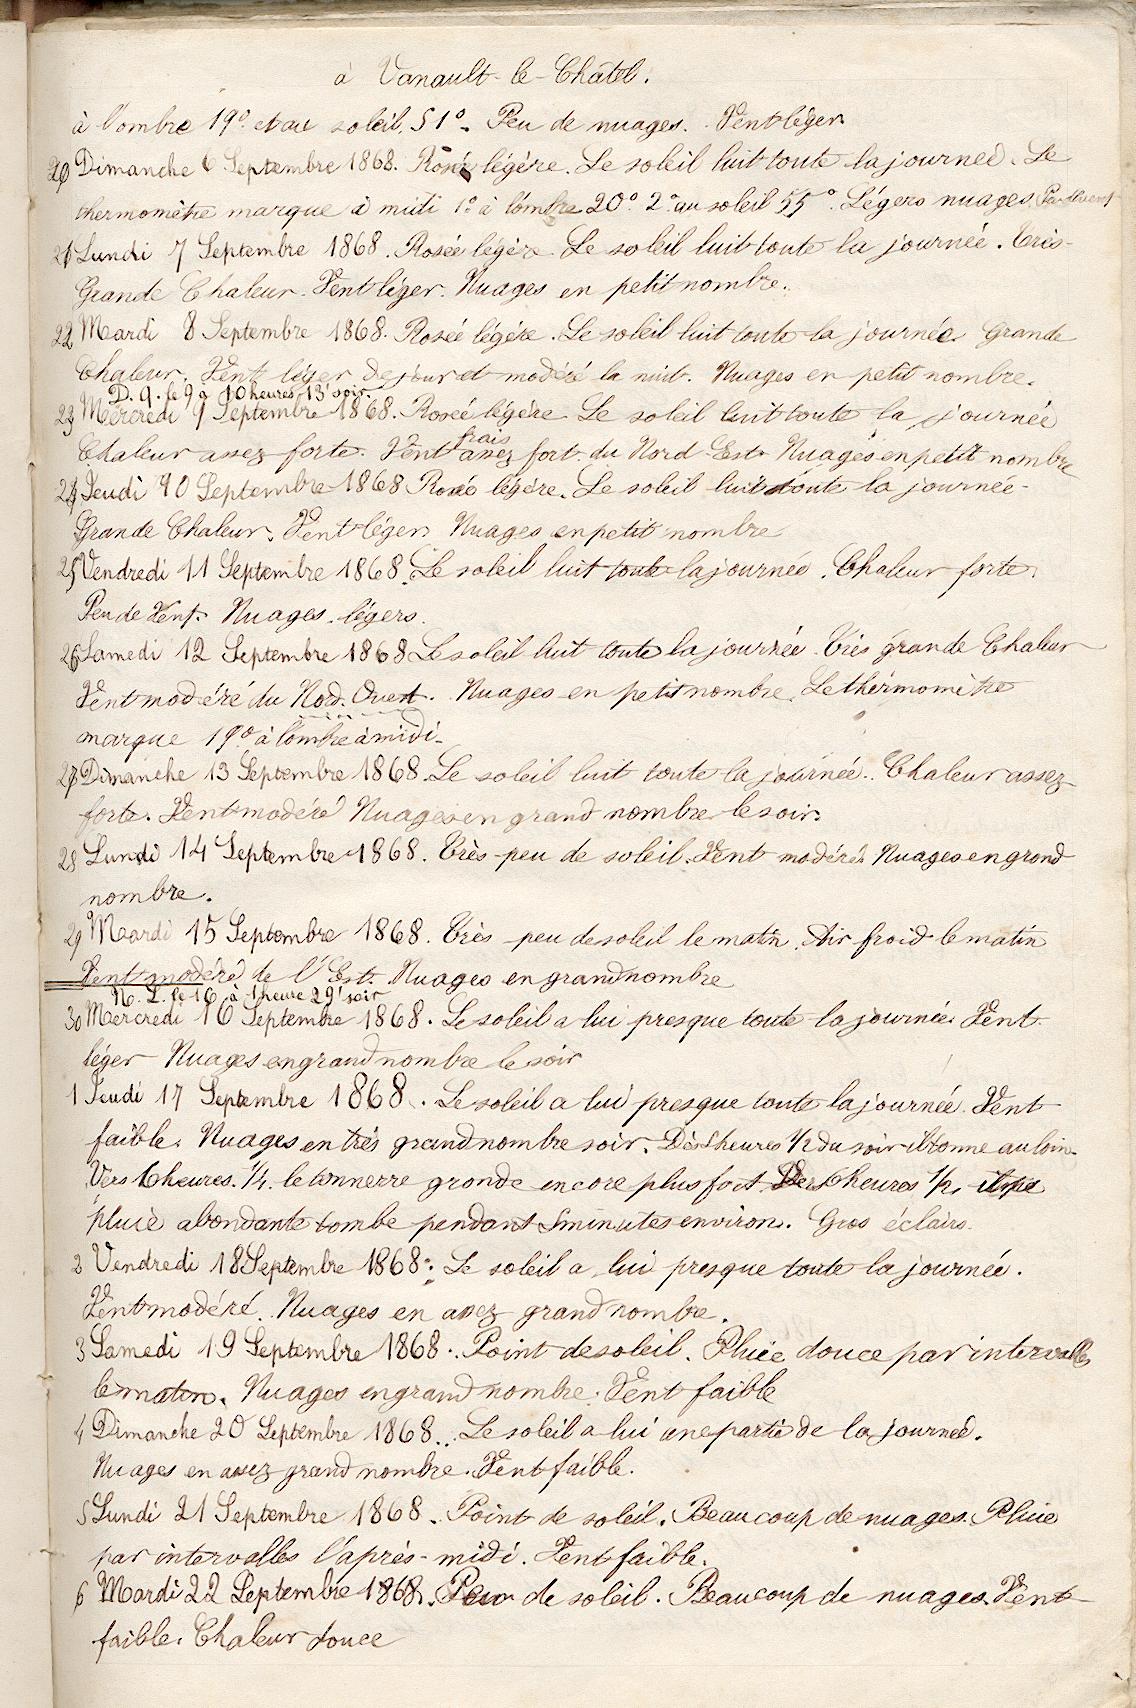 à Vanault-le-Châtel.
à l'ombre 19° et au soleil, 51°. Peu de nuages. Vent léger
20 Dimanche 6 Septembre 1868. Rosée légère. Le soleil luit toute la journée. Le
thermomètre marque à midi 1° à l'ombre 20° 2° au soleil 55°. Légers nuages. Pas de vent
21 Lundi 7 Septembre 1868. Rosée légère. Le soleil luit toute la journée. Très-
Grande Chaleur. Vent léger. Nuages en petit nombre.
22 Mardi 8 Septembre 1868. Rosée légère. Le soleil luit toute la journée. Grande
Chaleur. Vent léger de jour et modéré la nuit. Nuages en petit nombre.
D. Q. le 9 à 10 heures, 13' soir.
23 Mercredi 9 Septembre 1868. Roseé légère Le soleil luit toute la journée
frais
Chaleur assez forte. Vent assez fort du Nord-Est. Nuages en petit nombre
24 Jeudi 10 Septembre 1868 Rosée légère. Le soleil luit toute la journée-
Grande Chaleur. Vent léger. Nuages en petit nombre
25 Vendredi 11 Septembre 1868. Le soleil luit toute la journée. Chaleur forte.
Peu de Vent. Nuages. légers.
26 Samedi 12 Septembre 1868 Le soleil luit toute la journée. Très grande Chaleur
Vent modéré du Nord-Ouest. Nuages en petit nombre. Le thérmomètre
marque 19° à l'ombre à midi-
27 Dimanche 13 Septembre 1868. Le soleil luit toute la journée.. Chaleur assez
forte. Vent modéré Nuages en grand nombre le soir.
28 Lundi 14 Septembre 1868. Très-peu de soleil. Vent modéré. Nuages en grand
nombre.
29 Mardi 15 Septembre 1868. Très-peu de soleil le matin. Air froid le matin
Vent modéré de l'Est. Nuages en grand nombre
N. L. le 16 à 1 heure 29' soir
30 Mercredi 16 Septembre 1868. Le soleil a lui presque toute la journée. Vent
léger Nuages en grand nombre le soir
1 Jeudi 17 Septembre 1868. Le soleil a lui presque toute la journée. Vent
faible. Nuages en très grand nombre soir. Dès 5 heures 1/2 du soir il tonne au loin.
Vers 6 heures. 1/4. le tonnerre gronde encore plus fort. Vers 6 heures 1/2,
pluie abondante tombe pendant 5 minutes environ. Gros éclairs.
2 Vendredi 18 Septembre 1868. Le soleil a lui presque toute la journée.
Vent modéré. Nuages en assez grand nombre.
3 Samedi 19 Septembre 1868. Point de soleil. Pluie douce par intervalles
le matin. Nuages en grand nombre. Vent faible
4 Dimanche 20 Septembre 1868. Le soleil a lui une partie de la journée.
Nuages en assez grand nombre. Vent faible.
5 Lundi 21 Septembre 1868. Point de soleil. Beaucoup de nuages. Pluie
par intervalles l'après-midi. Vent faible.
6 Mardi 22 Septembre 1868. Peu de soleil. Beaucoup de nuages. Vent
faible. Chaleur douce